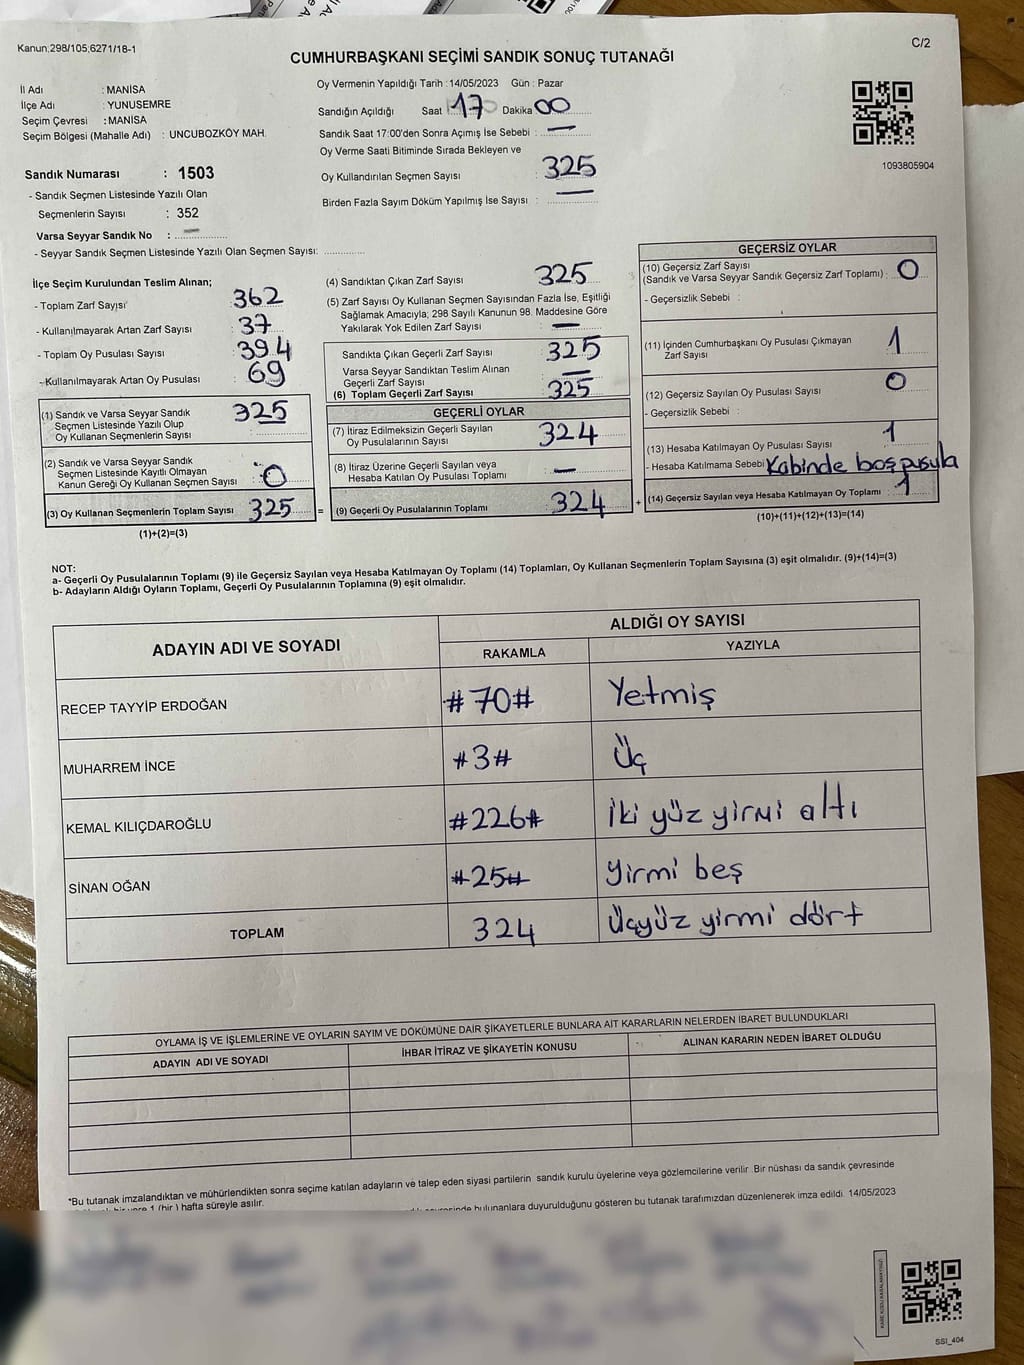 Kanun;298/105;6271/18-1
C/2
CUMHURBAŞKANI SEÇİMİ SANDIK SONUÇ TUTANAĞI
İl Adı : MANİSA
İlçe Adı : YUNUSEMRE
Seçim Çevresi : MANİSA
Seçim Bölgesi (Mahalle Adı) : UNCUBOZKÖY MAH.
Sandık Numarası : 1503
- Sandık Seçmen Listesinde Yazılı Olan
Seçmenlerin Sayısı : 352
Varsa Seyyar Sandık No : —
- Seyyar Sandık Seçmen Listesinde Yazılı Olan Seçmen Sayısı:
Oy Vermenin Yapıldığı Tarih :14/05/2023 Gün : Pazar
Sandığın Açıldığı Saat 17 Dakika 00
Sandık Saat 17:00'den Sonra Açımış İse Sebebi : —
Oy Verme Saati Bitiminde Sırada Bekleyen ve
Oy Kullandırılan Seçmen Sayısı : 325
Birden Fazla Sayım Döküm Yapılmış İse Sayısı : —
1093805904
İlçe Seçim Kurulundan Teslim Alınan;
- Toplam Zarf Sayısı : 362
- Kullanılmayarak Artan Zarf Sayısı : 37
- Toplam Oy Pusulası Sayısı : 394
- Kullanılmayarak Artan Oy Pusulası : 69
(1) Sandık ve Varsa Seyyar Sandık
Seçmen Listesinde Yazılı Olup
Oy Kullanan Seçmenlerin Sayısı : 325
(2) Sandık ve Varsa Seyyar Sandık
Seçmen Listesinde Kayıtlı Olmayan
Kanun Gereği Oy Kullanan Seçmen Sayısı : 0
(3) Oy Kullanan Seçmenlerin Toplam Sayısı 325
(1)+(2)=(3)
(4) Sandıktan Çıkan Zarf Sayısı : 325
(5) Zarf Sayısı Oy Kullanan Seçmen Sayısından Fazla İse, Eşitliği
Sağlamak Amacıyla; 298 Sayılı Kanunun 98. Maddesine Göre
Yakılarak Yok Edilen Zarf Sayısı : —
Sandıkta Çıkan Geçerli Zarf Sayısı : 325
Varsa Seyyar Sandıktan Teslim Alınan
Geçerli Zarf Sayısı : —
(6) Toplam Geçerli Zarf Sayısı : 325
GEÇERLİ OYLAR
(7) İtiraz Edilmeksizin Geçerli Sayılan
Oy Pusulalarının Sayısı : 324
(8) İtiraz Üzerine Geçerli Sayılan veya
Hesaba Katılan Oy Pusulası Toplamı : —
= (9) Geçerli Oy Pusulalarının Toplamı : 324 +
GEÇERSİZ OYLAR
(10) Geçersiz Zarf Sayısı
(Sandık ve Varsa Seyyar Sandık Geçersiz Zarf Toplamı) : 0
- Geçersizlik Sebebi :
(11) İçinden Cumhurbaşkanı Oy Pusulası Çıkmayan
Zarf Sayısı : 1
(12) Geçersiz Sayılan Oy Pusulası Sayısı : 0
- Geçersizlik Sebebi :
(13) Hesaba Katılmayan Oy Pusulası Sayısı : 1
- Hesaba Katılmama Sebebi Kabinde boş pusula
(14) Geçersiz Sayılan veya Hesaba Katılmayan Oy Toplamı : 1
(10)+(11)+(12)+(13)=(14)
NOT:
a- Geçerli Oy Pusulalarının Toplamı (9) ile Geçersiz Sayılan veya Hesaba Katılmayan Oy Toplamı (14) Toplamları, Oy Kullanan Seçmenlerin Toplam Sayısına (3) eşit olmalıdır. (9)+(14)=(3)
b- Adayların Aldığı Oyların Toplamı, Geçerli Oy Pusulalarının Toplamına (9) eşit olmalıdır.
ADAYIN ADI VE SOYADI
ALDIĞI OY SAYISI
RAKAMLA YAZIYLA
RECEP TAYYİP ERDOĞAN #70# Yetmiş
MUHARREM İNCE #3# Üç
KEMAL KILIÇDAROĞLU #226# İki yüz yirmi altı
SİNAN OĞAN #25# Yirmi beş
TOPLAM 324 Üçyüz yirmi dört
OYLAMA İŞ VE İŞLEMLERİNE VE OYLARIN SAYIM VE DÖKÜMÜNE DAİR ŞİKAYETLERLE BUNLARA AİT KARARLARIN NELERDEN İBARET BULUNDUKLARI
ADAYIN ADI VE SOYADI İHBAR İTİRAZ VE ŞİKAYETİN KONUSU ALINAN KARARIN NEDEN İBARET OLDUĞU
*Bu tutanak imzalandıktan ve mühürlendikten sonra seçime katılan adayların ve talep eden siyasi partilerin sandık kurulu üyelerine veya gözlemcilerine verilir. Bir nüshası da sandık çevresinde
1 (bir) hafta süreyle asılır.
bulunanlara duyurulduğunu gösteren bu tutanak tarafımızdan düzenlenerek imza edildi. 14/05/2023
SSI_404